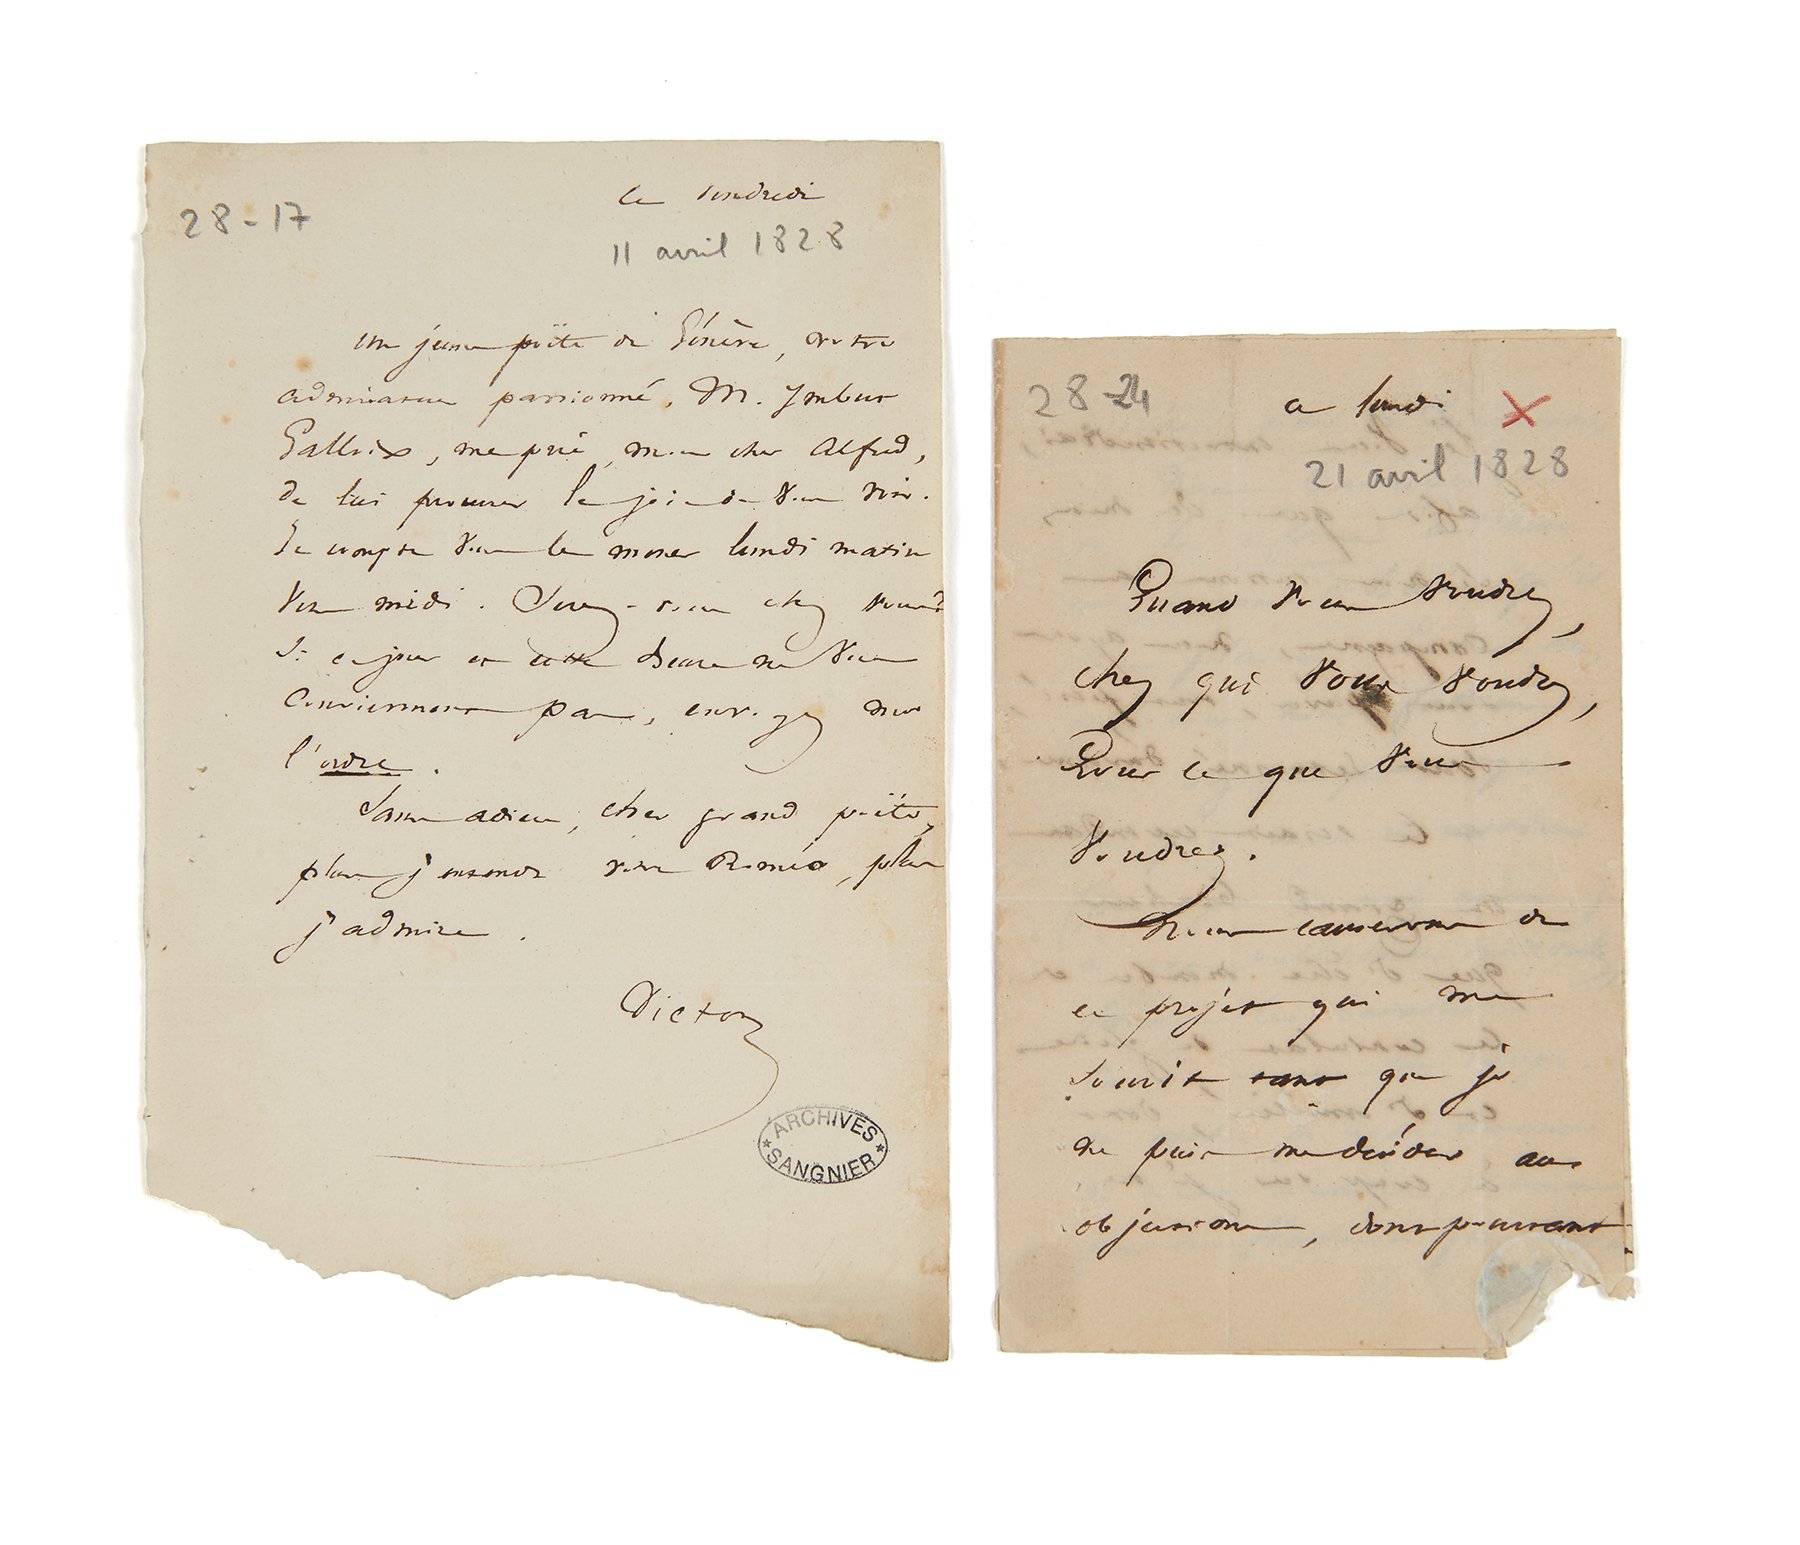 28-17
ce vendredi
11 avril 1828
un jeune poëte de Genève, votre
admirateur passionné, M. Ymbert
Galloix, me prie, mon cher Alfred,
de lui procurer la joie de vous voir.
Je compte vous le mener lundi matin
vers midi. Serez-vous chez vous?
Si ce jour et cette heure ne vous
conviennent pas, envoyez moi
l'ordre.
Sans adieu, cher grand poëte,
plus j'entends votre Roméo, plus
j'admire.
Victor
ARCHIVES
SANGNIER
28-24
ce lundi
21 avril 1828
Quand vous voudrez,
chez qui vous voudrez,
Pour ce que vous
voudrez.
Nous causerons de
ce projet qui me
sourit tant que je
ne puis me décider aux
objections, dont pourtant